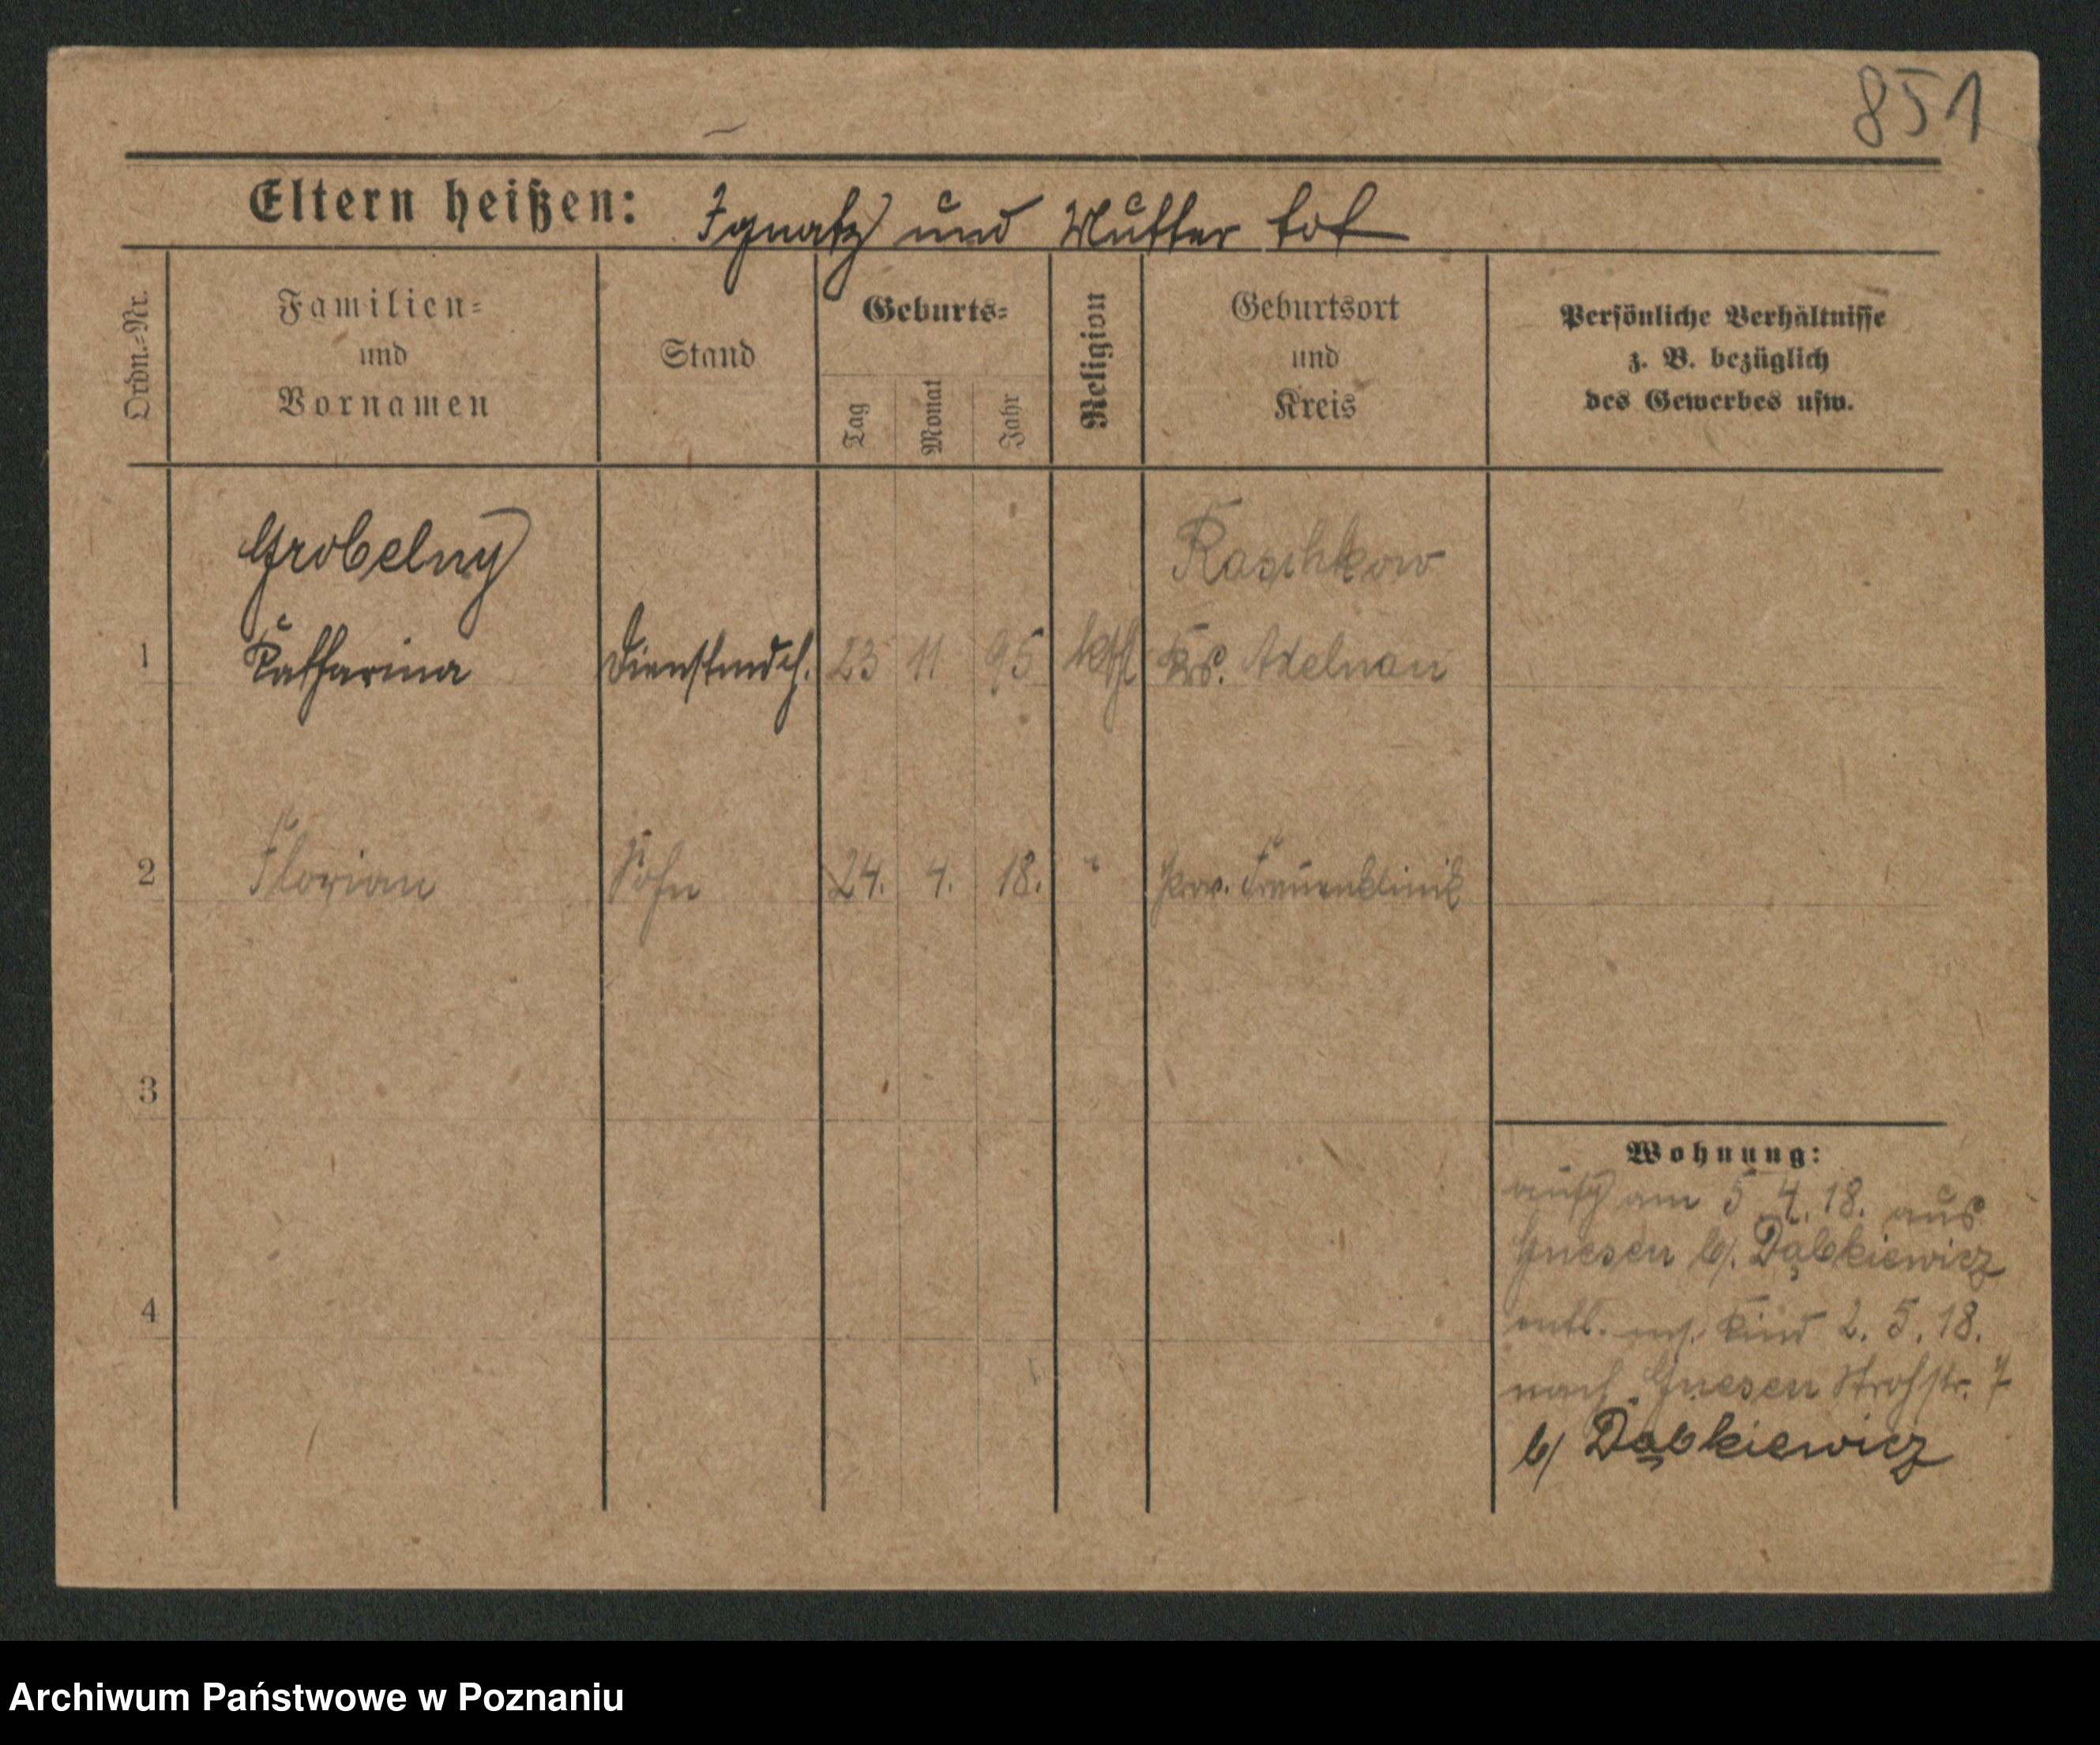 851
Eltern heißen: Ignatz und Mutter tot
Ordn.-Nr.
Familien-
und
Vornamen
Stand
Geburts-
Tag
Monat
Jahr
Religion
Geburtsort
und
Kreis
Persönliche Verhältnisse
z. B. bezüglich
des Gewerbes usw.
Grobelny Raschkow
1 Katharina Dienstmdch. 23 11 95 kth Krs. Adelnau
2 Florian Sohn 24. 4. 18. " Prov. Frauenklinik
3
4
Wohnung:
am 5.4.18. aus
Gnesen b/. Dąbkiewicz
entl. m/. Kind 2.5.18.
nach Gnesen Strohstr. 7
b/ Dąbkiewicz
Archiwum Państwowe w Poznaniu